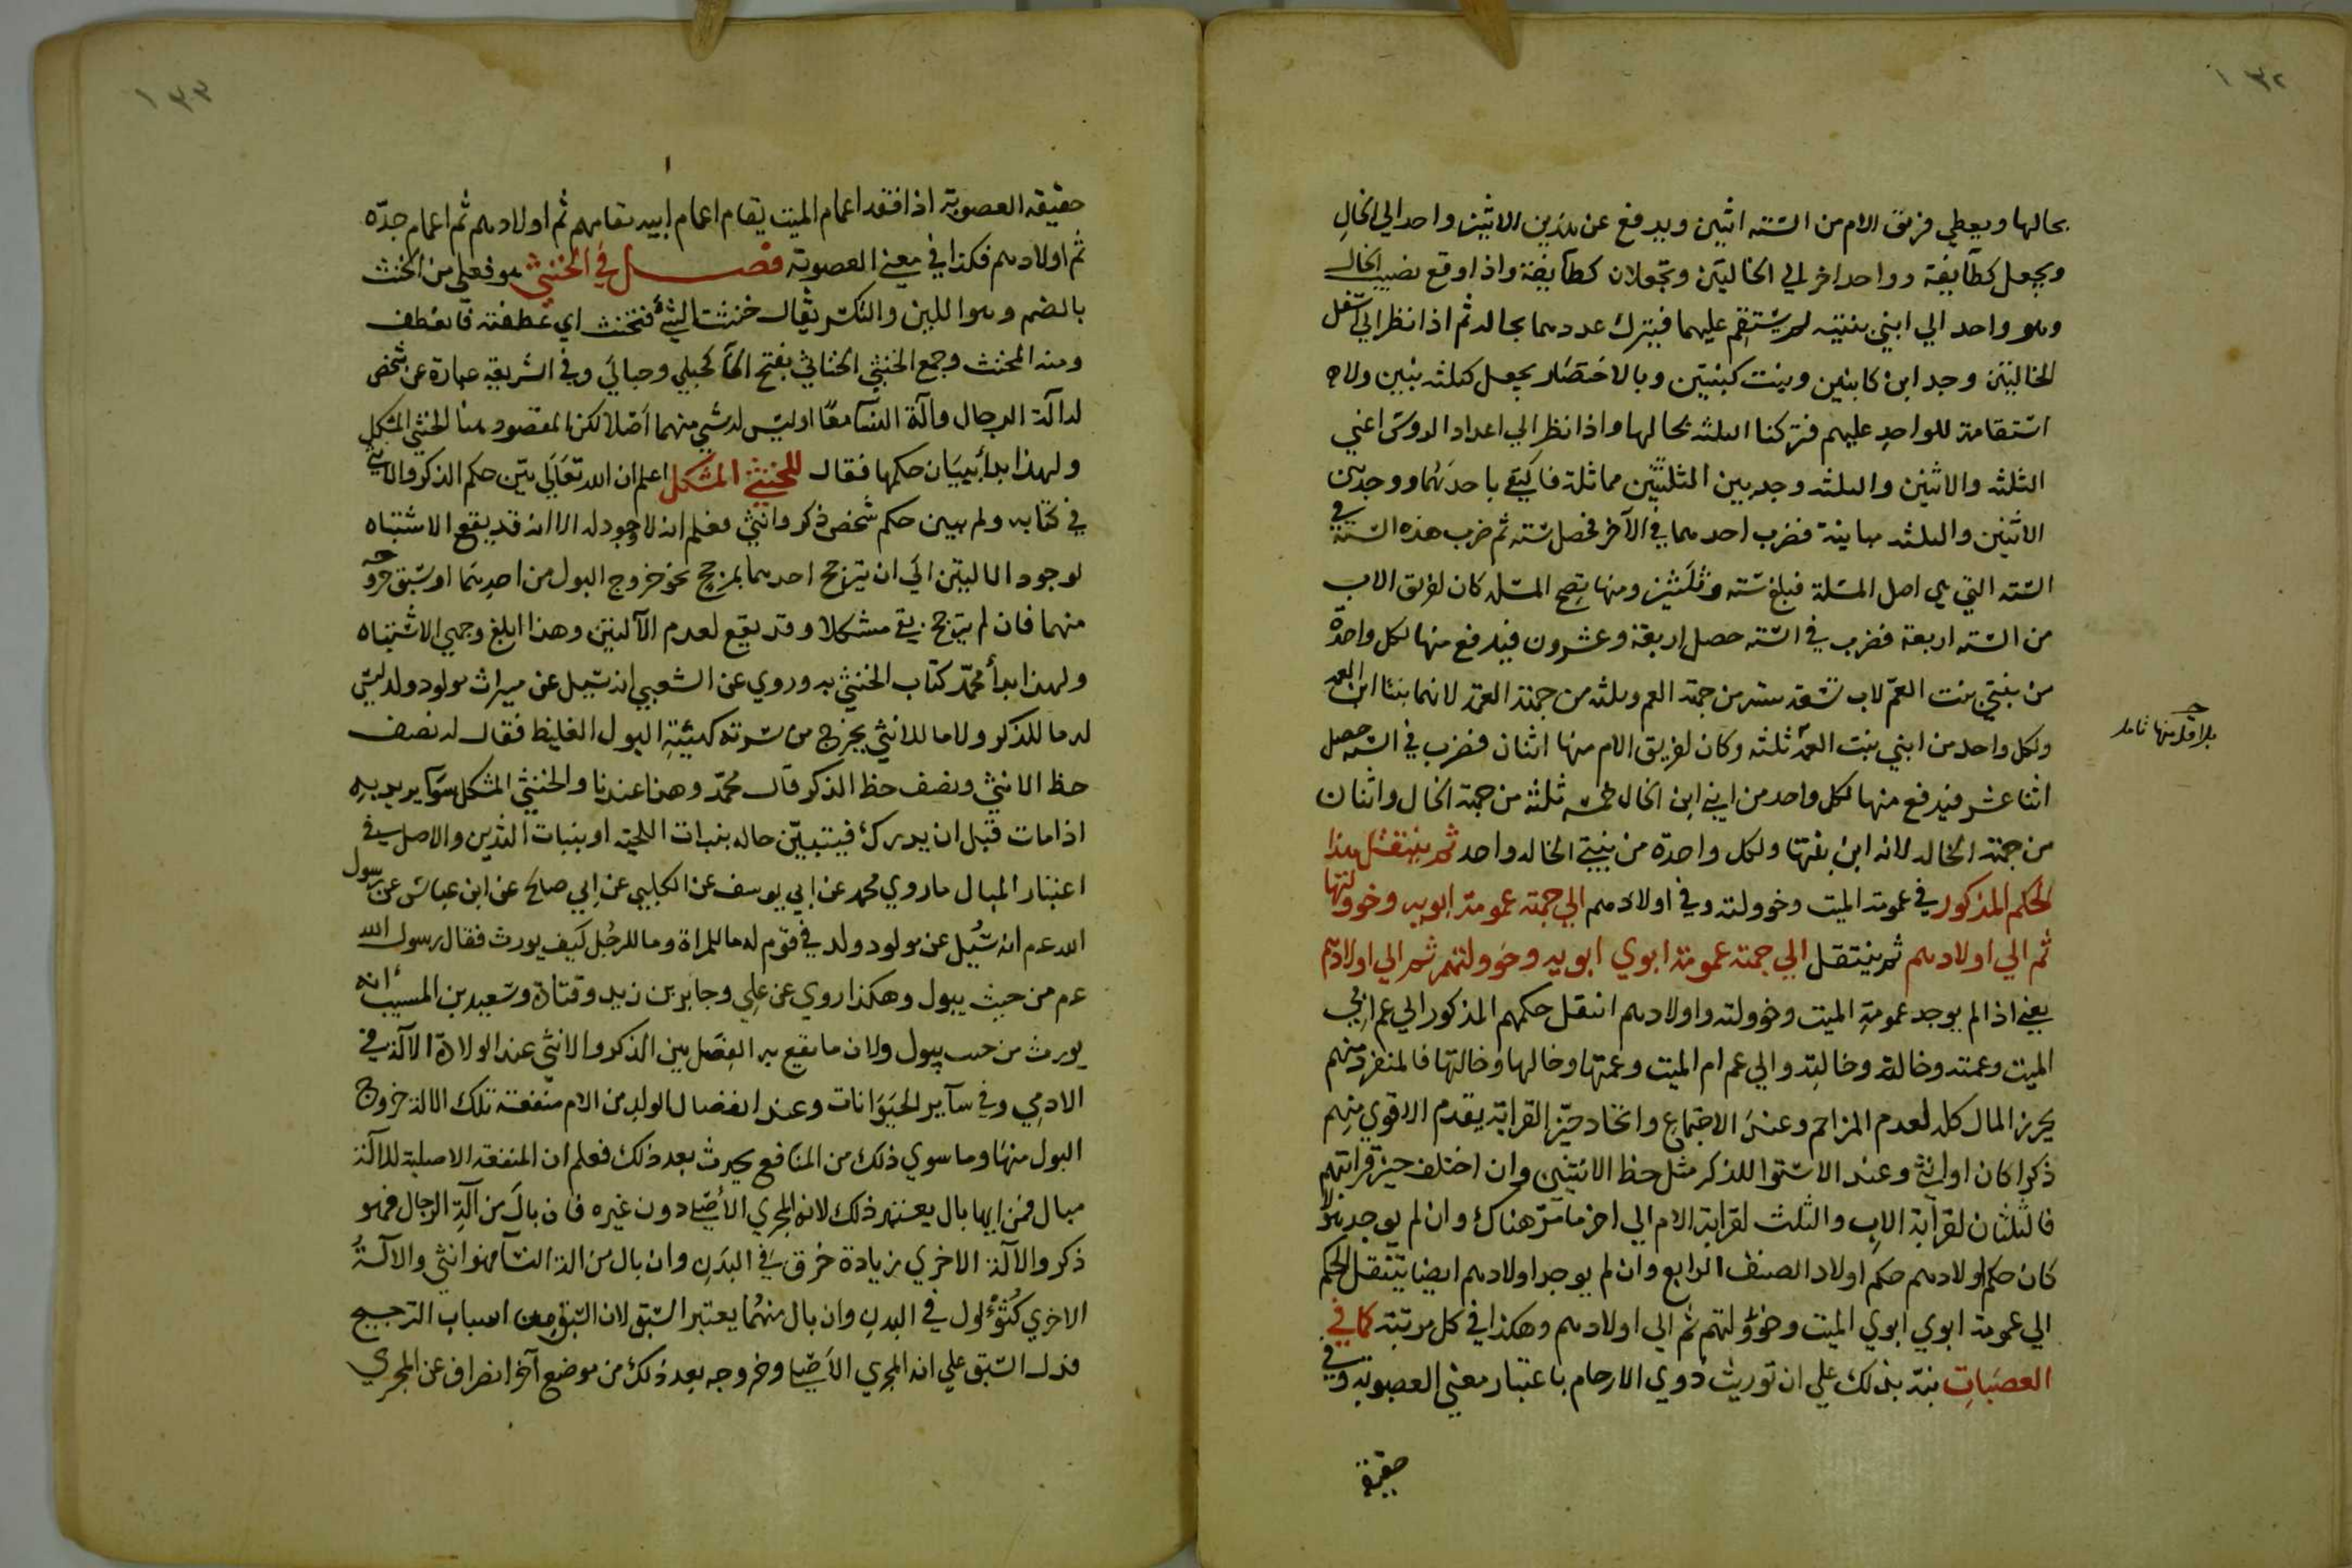 ١٣٢
بحالها ويعطي فريق الام من الستة اثنين ويدفع عن هذين الاثنين واحد الي الخال
ويجعل كطايفة وواحد اخر الي الخالتين وتجعلان كطايفة واذا اوقع نصيب الخال
وهو واحد الي ابني بنتيه لم يستقم عليهما فيترك عددهما بحاله ثم اذا نظر الي اسفل
الخالتين وجد ابن كابنين وبنت كبنتين وبالاختصار يجعل كثلثه بنين ولا
استقامة للواحد عليهم فتركنا الثلثه بحالها واذا نظر الي اعداد الروس اعني
الثلثه والاثنين والثلثه وجد بين الثلثتين مماثلة فاكتفي باحديهما ووجد بين
الاثنين والثلثه مباينة فضرب احدهما في الآخر فحصل ستة ثم ضرب هذه الستة في
الستة التي هي اصل المسئلة فبلغ ستة وثلثين ومنها تصح المسئله كان لفريق الاب
من الستة اربعة فضرب في الستة حصل اربعة وعشرون فيدفع منها لكل واحدة
من بنتي بنت العم لاب تسعة ستة من جهة العم وثلثه من جهة العمة لانهما بنتا ابن العمة
ولكل واحد من ابني بنت العمة ثلثة وكان لفريق الام منها اثنان فضرب في الستة حصل
اثنا عشر فيدفع منها لكل واحد من ابني ابن الخال خمسة ثلثة من جهة الخال واثنان
من جهة الخاله لانه ابن بنتها ولكل واحدة من بنتي الخاله واحد ثم ينتقل هذا
الحكم المذكور في عمومة الميت وخوولته وفي اولادهم الي جهة عمومة ابويه وخوولتهما
ثم الي اولادهم ثم ينتقل الي جهة عمومة ابوي ابويه وخوولتهم ثم الي اولادهم
يعني اذا لم يوجد عمومة الميت وخوولته واولادهم انتقل حكمهم المذكور الي عم ابي
الميت وعمته وخاله وخالته والي عم ام الميت وعمتها وخالها وخالتها فالمنفرد منهم
يحرز المال كله لعدم المزاحم وعند الاجتماع واتحاد حيز القرابة يقدم الاقوي منهم
ذكرا كان او انثي وعند الاستوا للذكر مثل حظ الانثيين وان اختلف حيز قرابتهم
فالثلثان لقرابة الاب والثلث لقرابة الام الي اخر ما مر هناك وان لم يوجد هؤلا
كان حكم اولادهم حكم اولاد الصنف الرابع وان لم يوجد اولادهم ايضا ينتقل الحكم
الي عمومة ابوي ابوي الميت وخوولتهم ثم الي اولادهم وهكذا في كل مرتبة كما في
العصبات نبه بذلك علي ان توريث ذوي الارحام باعتبار معني العصوبة وفي
حقيقة
١٣٣
حقيقة العصوبة اذا فقد اعمام الميت يقام اعمام ابيه مقامهم ثم اولادهم ثم اعمام جده
ثم اولادهم فكذا في معني العصوبة فصل في الخنثي هو فعلي من الخنث
بالضم وهو اللين والتكسر يقال خنثت الشئ فتخنث اي عطفته فانعطف
ومنه المخنث وجمع الخنثي الخناثي بفتح الخا كحبلي وحبالي وفي الشريعة عبارة عن شخص
له آلة الرجال وآلة النسا معًا او ليس له شي منهما اصلا لكن المقصود هنا الخنثي المشكل
ولهذا بدأ ببيان حكمها فقال للخنثي المشكل اعلم ان الله تعالي بين حكم الذكر والانثي
في كتابه ولم يبين حكم شخص ذكر وانثي فعلم انه لا وجود له الا انه قد يقع الاشتباه
لوجود الاليتين الي ان يترجح احدهما بمرجح نحو خروج البول من احدهما او سبق خروجه
منهما فان لم يترجح بقي مشكلا وقد يقع لعدم الآلتين وهذا ابلغ وجهي الاشتباه
ولهذا بدأ محمد كتاب الخنثي به وروي عن الشعبي انه سئل عن ميراث مولود ولد ليس
له ما للذكر ولا ما للانثي يخرج من سرته كهيئة البول الغليظ فقال له نصف
حظ الانثي ونصف حظ الذكر قال محمد وهذا عندنا والخنثي المشكل سوا يريد به
اذا مات قبل ان يدرك فيتبين حاله بنبات اللحية او بنبات الثديين والاصل في
اعتبار المبال ما روي محمد عن ابي يوسف عن الكلبي عن ابي صالح عن ابن عباس عن رسول
الله عم انه سئل عن مولود ولد في قوم له ما للمراة وما للرجل كيف يورث فقال رسول الله
عم من حيث يبول وهكذا روي عن علي وجابر بن زيد وقتادة وسعيد بن المسيب انه
يورث من حيث يبول ولان ما يقع به الفصل بين الذكر والانثي عند الولادة الآلة في
الادمي وفي ساير الحيوانات وعند انفصال الولد من الام منفعة تلك الالة خروج
البول منها وما سوي ذلك من المنافع يحدث بعد ذلك فعلم ان المنفعة الاصلية للآلة
مبال فمن ايها بال يعتبر ذلك لانه المجري الاصلي دون غيره فان بال من آلة الرجال فهو
ذكر والآلة الاخري زيادة خرق في البدن وان بال من الة النسا فهو انثي والالة
الاخري كثؤلول في البدن وان بال منهما يعتبر السبق لان السبق من اسباب الترجيح
فدل السبق علي انه المجري الاصلي وخروجه بعد ذلك من موضع آخر انصراف عن المجري